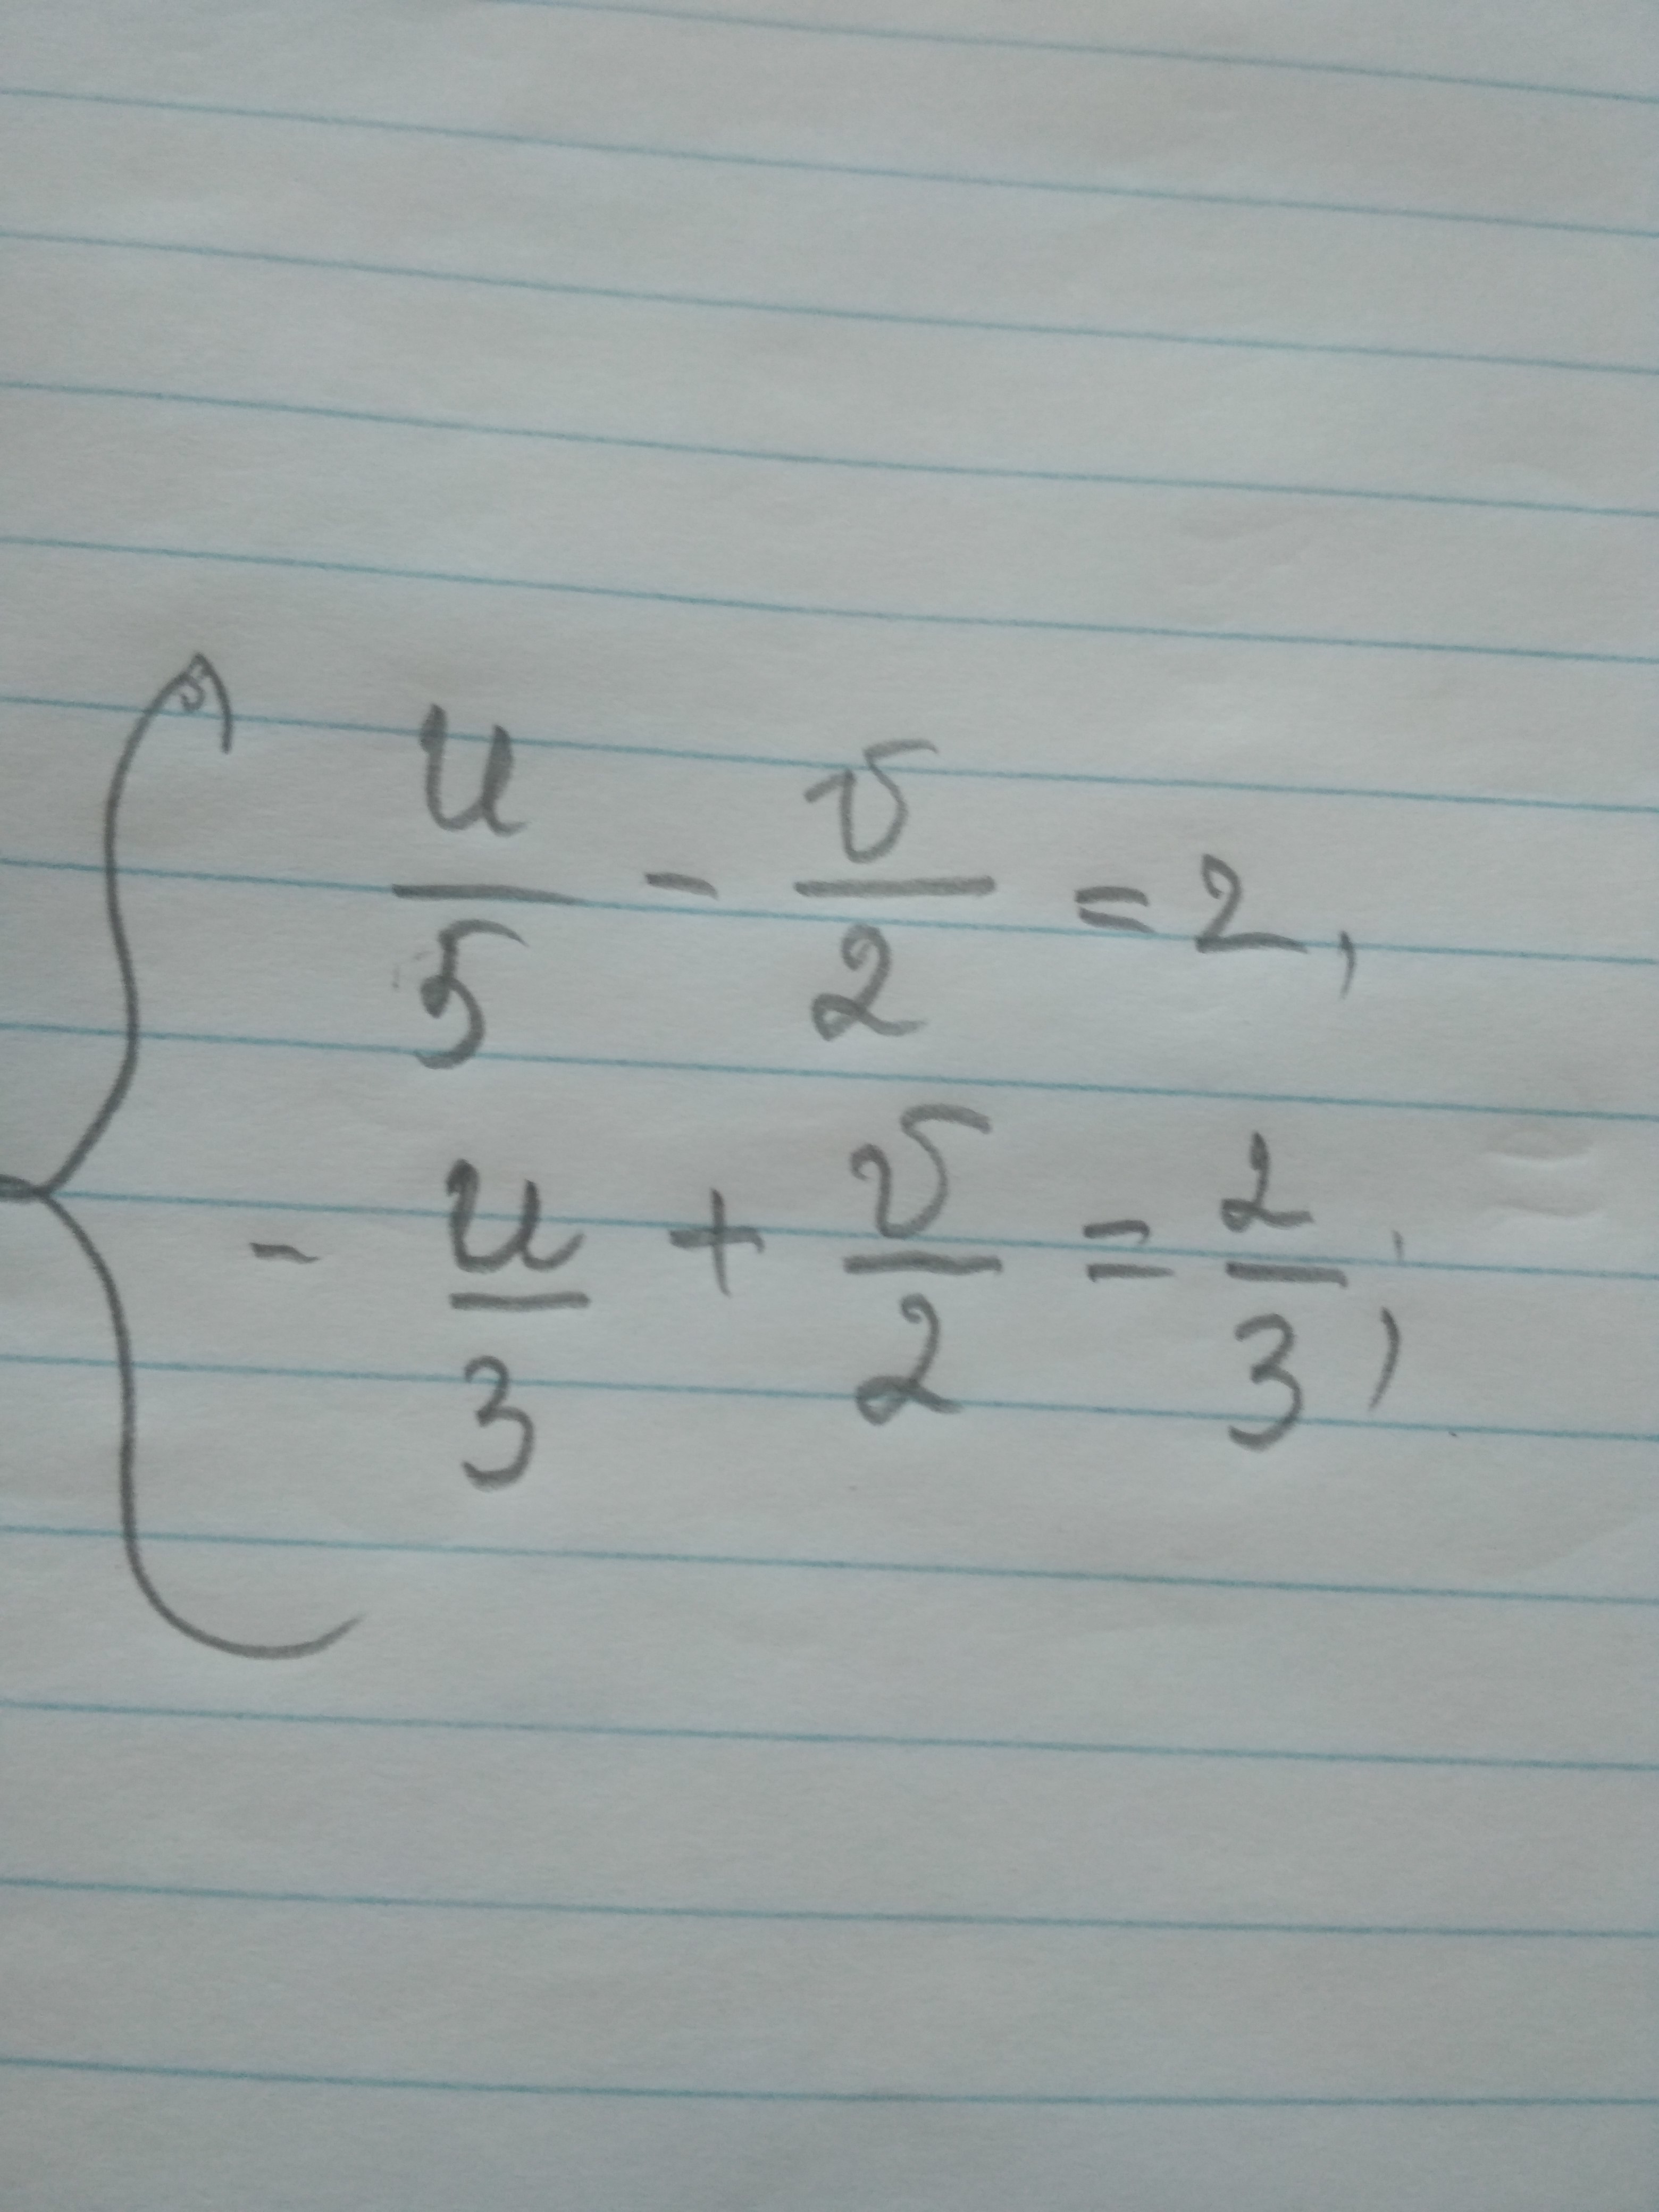 u/5 - v/2 = 2,
- u/3 + v/2 = 2/3,